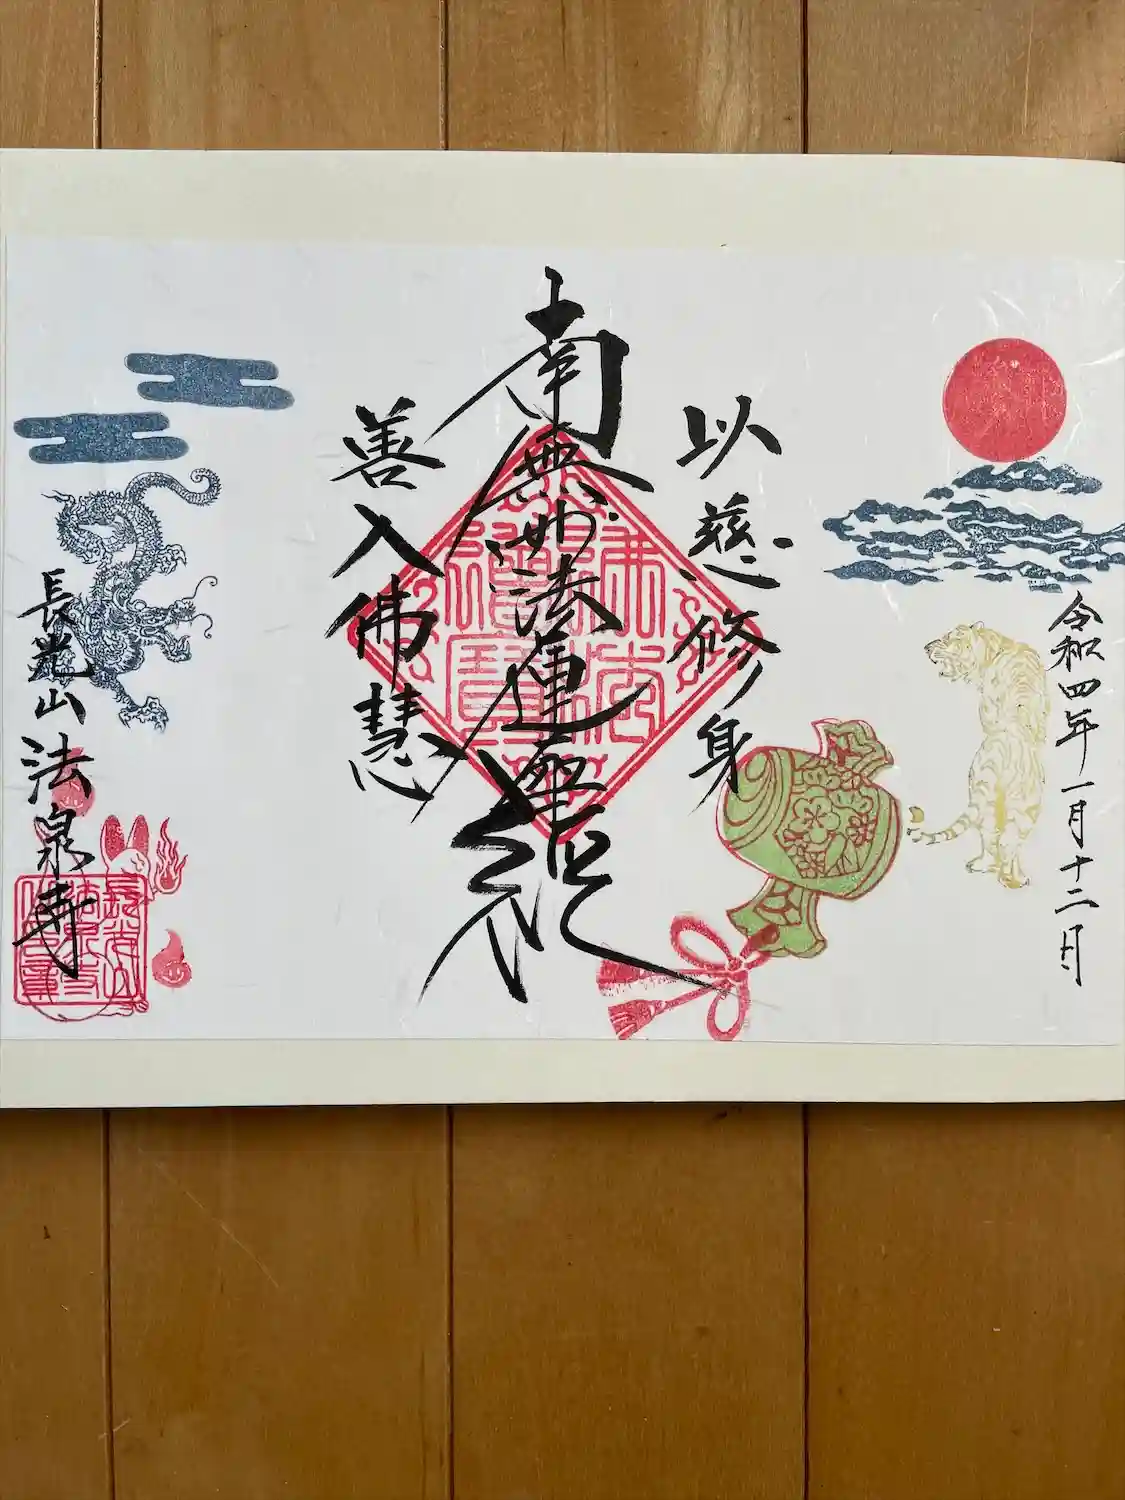 令和四年一月十二日
以慈修身
南無妙法蓮華経
善入佛慧
長光山 法泉寺
佛法
僧寶